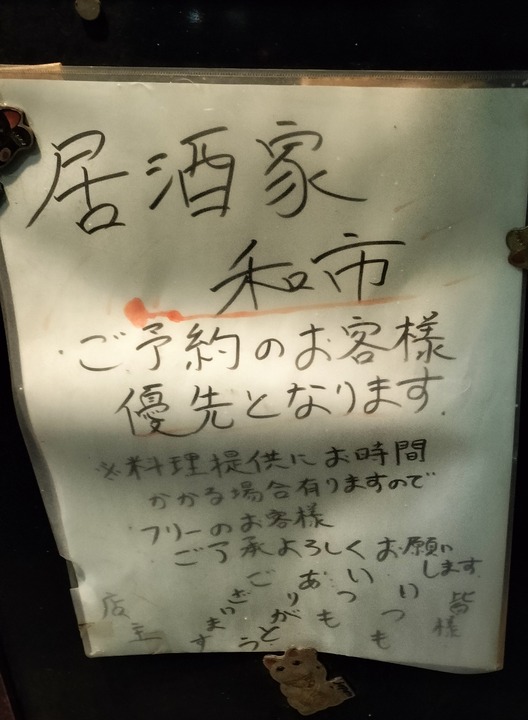 居酒家
和市
・ご予約のお客様
優先となります.
※料理提供にお時間
かかる場合有りますので
フリーのお客様
ご了承よろしくお願い
します
皆様
いつも
いつも
ありがとう
ございます
店主